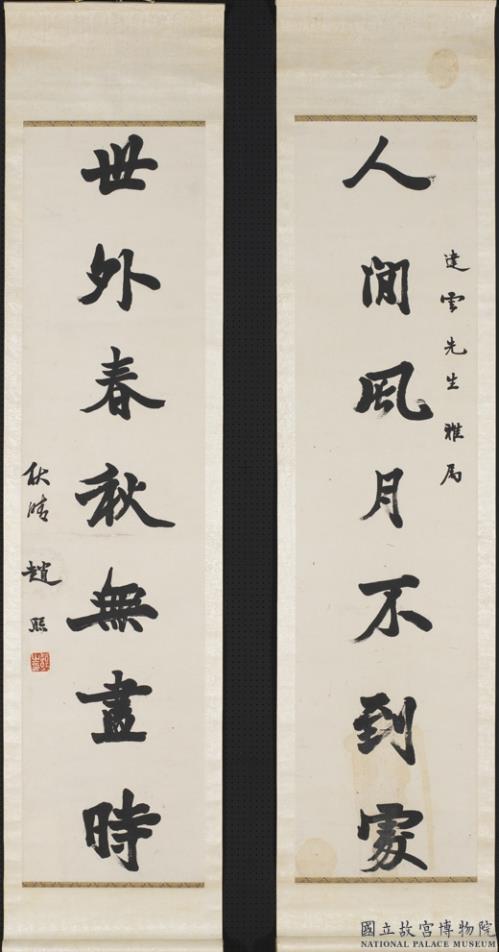 雲先生雅屬
人間風月不到處
世外春秋無盡時
趙熙
國立故宮博物院
NATIONAL PALACE MUSEUM